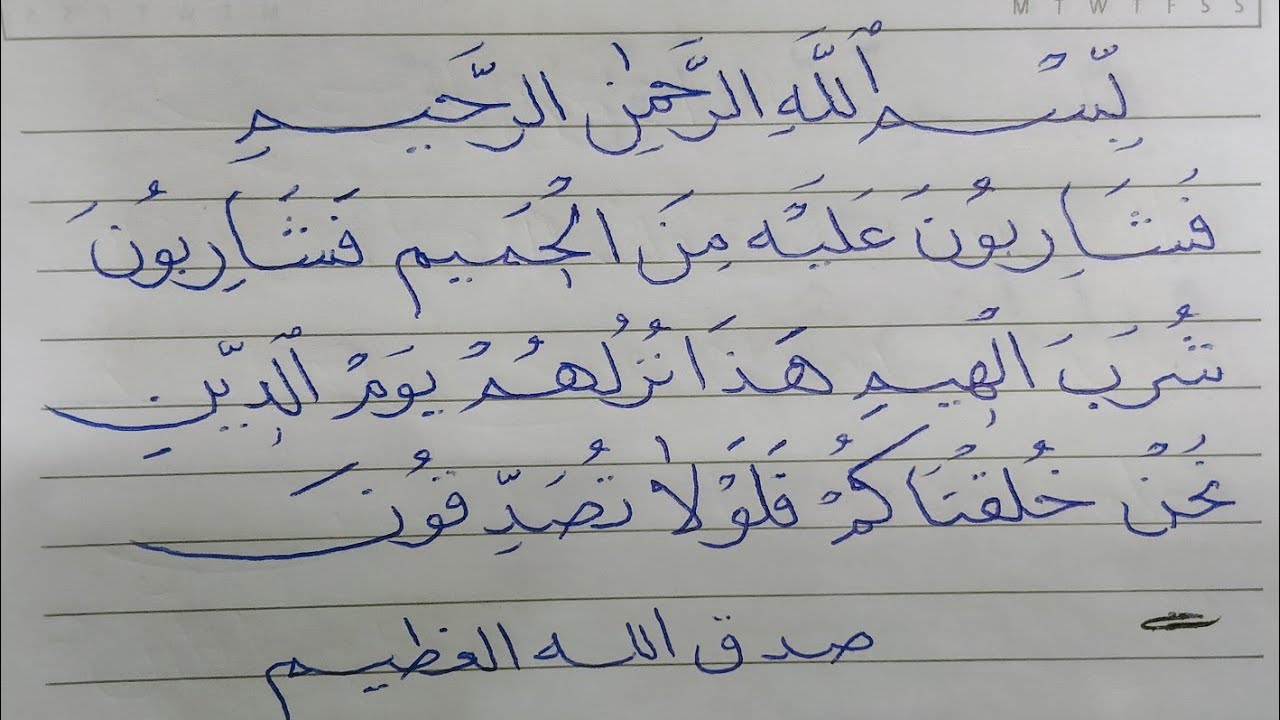 M T W T F S S
بِسْمِ ٱللَّهِ الرَّحْمَٰنِ الرَّحِيمِ
فَشَارِبُونَ عَلَيْهِ مِنَ الْحَمِيمِ فَشَارِبُونَ
شُرْبَ الْهِيمِ هَذَا نُزُلُهُمْ يَوْمَ الدِّينِ
نَحْنُ خَلَقْنَاكُمْ فَلَوْلَا تُصَدِّقُونَ
صدق الله العظيم